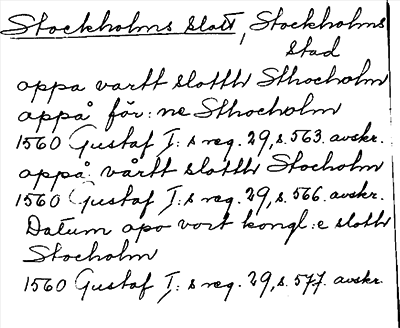 Stockholms slott, Stockholms
stad
oppa vartt slotth Sthocholm
oppå för:ne Sthocholm
1560 Gustaf I:s reg. 29, s. 563. avskr.
oppå vårtt slotth Stocholm
1560 Gustaf I:s reg. 29, s. 566. avskr.
Datum opo vort kongl:e slotth
Stocholm
1560 Gustaf I:s reg. 29, s. 577. avskr.